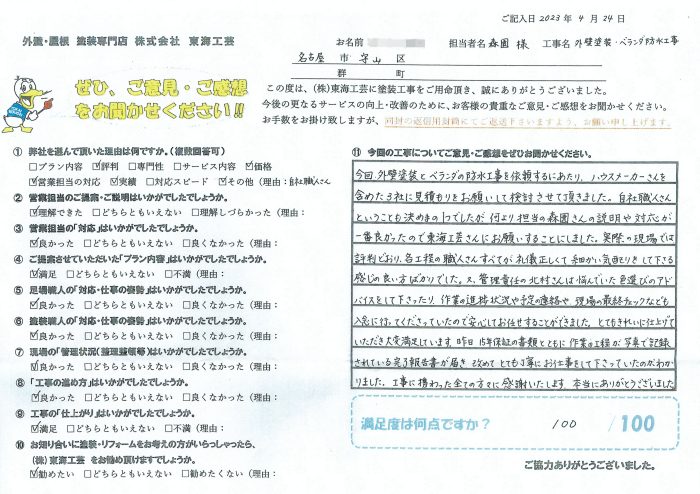 ご記入日 2023 年 4 月 24 日
外壁・屋根 塗装専門店 株式会社 東海工芸
お名前 担当者名 森園 様 工事名 外壁塗装・ベランダ防水工事
名古屋 市 守山 区
郡 町
ぜひ、ご意見・ご感想
をお聞かせください!!
この度は、(株)東海工芸に塗装工事をご用命頂き、誠にありがとうございました。
今後の更なるサービスの向上・改善のために、お客様の貴重なご意見・ご感想をお聞かせください。
お手数をお掛け致しますが、同封の返信用封筒にてご返送下さいますよう、お願い申し上げます。
① 弊社を選んで頂いた理由は何ですか。(複数回答可)
□プラン内容 ☑評判 □専門性 □サービス内容 ☑価格
☑営業担当の対応 ☑実績 □対応スピード ☑その他(理由:自社職人さん
② 営業担当のご提案・ご説明はいかがでしたでしょうか。
☑理解できた □どちらともいえない □理解しづらかった(理由:
③ 営業担当の「対応」はいかがでしたでしょうか。
☑良かった □どちらともいえない □良くなかった(理由:
④ ご提案させていただいた「プラン内容」はいかがでしたでしょうか。
☑満足 □どちらともいえない □不満(理由:
⑤ 足場職人の「対応・仕事の姿勢」はいかがでしたでしょうか。
☑良かった □どちらともいえない □良くなかった(理由:
⑥ 塗装職人の「対応・仕事の姿勢」はいかがでしたでしょうか。
☑良かった □どちらともいえない □良くなかった(理由:
⑦ 現場の「管理状況(整理整頓等)」はいかがでしたでしょうか。
☑良かった □どちらともいえない □良くなかった(理由:
⑧ 「工事の進め方」はいかがでしたでしょうか。
☑良かった □どちらともいえない □良くなかった(理由:
⑨ 工事の「仕上がり」はいかがでしたでしょうか。
☑満足 □どちらともいえない □不満(理由:
⑩ お知り合いに塗装・リフォームをお考えの方がいらっしゃったら、
(株)東海工芸 をお勧め頂けますでしょうか。
☑勧めたい □どちらともいえない □勧めたくない(理由:
⑪ 今回の工事についてご意見・ご感想をぜひお聞かせください。
今回、外壁塗装とベランダの防水工事を依頼するにあたり、ハウスメーカーさんを
含めた3社に見積もりをお願いして検討させて頂きました。自社職人さん
ということも決めの1つでしたが、何より担当の森園さんの説明や対応が
一番良かったので東海工芸さんにお願いすることにしました。実際の現場では
評判どおり、各工程の職人さんすべてが礼儀正しくて細かい気回りをして下さる
感じの良い方ばかりでした。又、管理責任の北村さんは悩んでいた色選びのアド
バイスをして下さったり、作業の進捗状況や予定の連絡や、現場の最終チェックなども
入念に行ってくださっていたので安心してお任せすることができました。とてもきれいに仕上げて
いただき大変満足しています。昨日、15年保証の書類とともに作業の工程が写真で記録
されている完了報告書が届き、改めてとても丁寧にお仕事をして下さっていたのがわか
りました。工事に携わった全ての方々に感謝いたします。本当にありがとうございました
満足度は何点ですか? 100 /100
ご協力ありがとうございました。